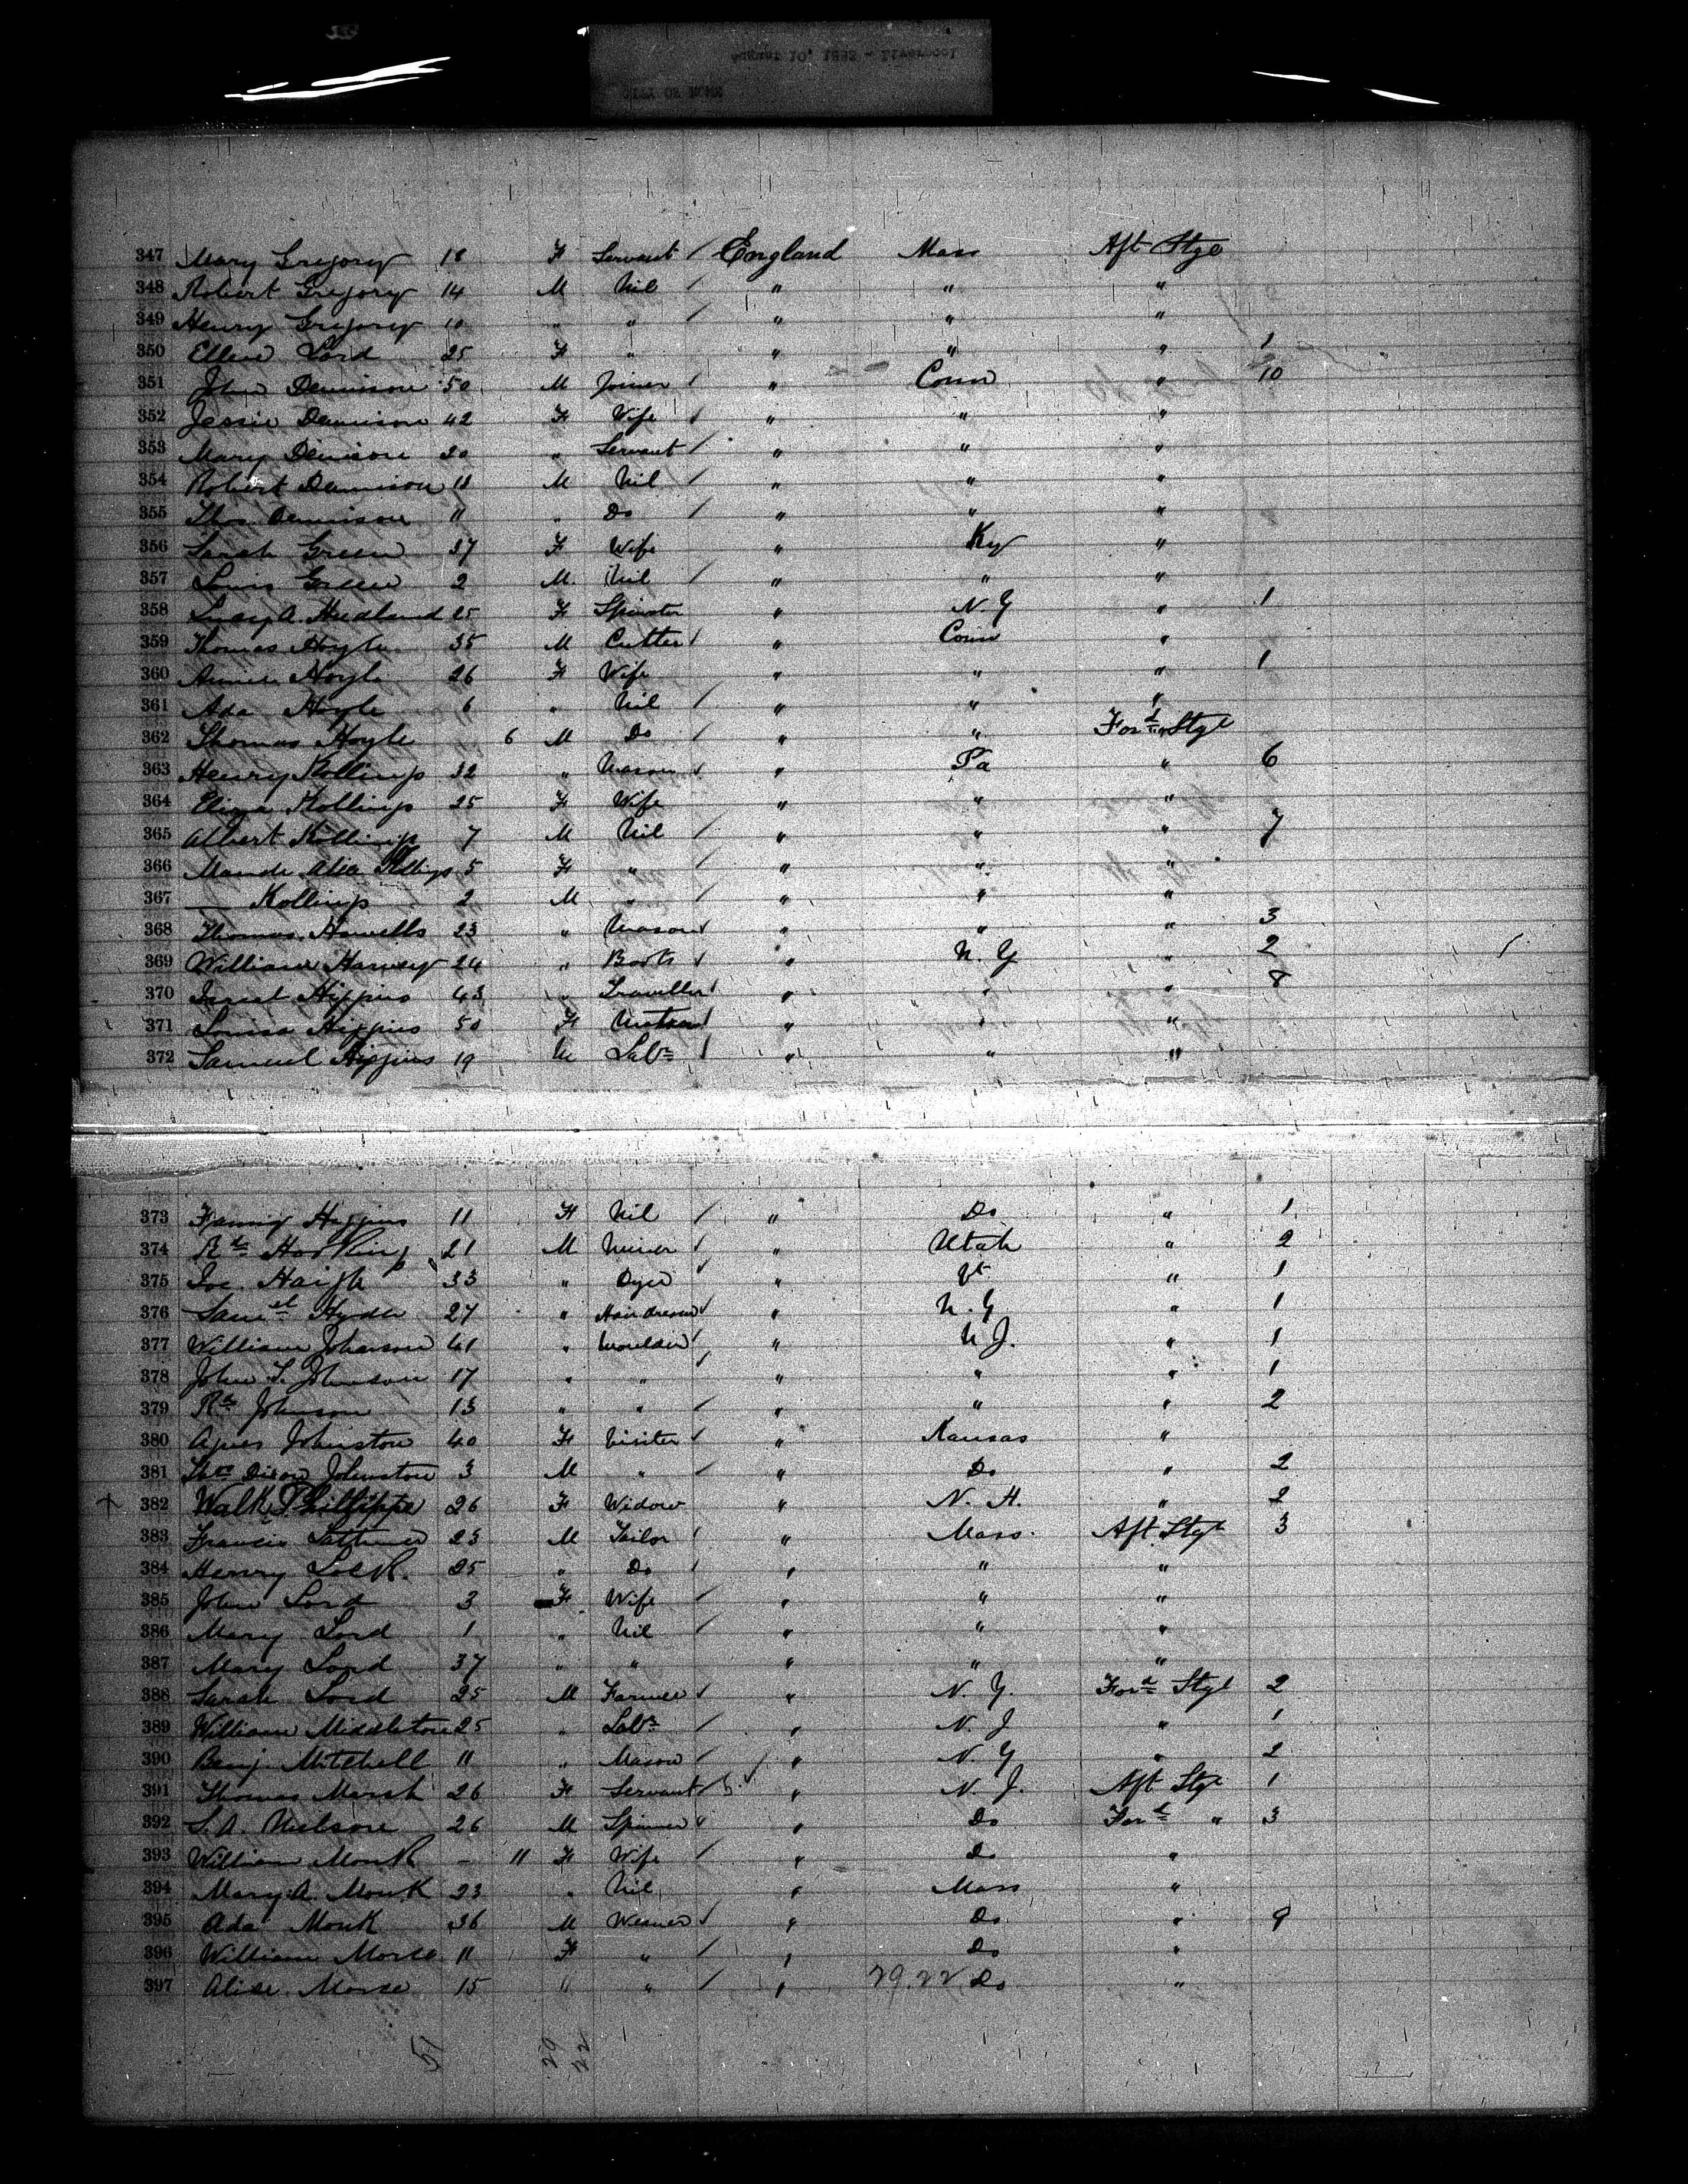 August 10, 1883 - Liverpool
CITY OF ROME
347 Mary Gregory 18 F Servant / England Mass Aft Stge
348 Robert Gregory 14 M Nil / " " "
349 Henry Gregory 10 " " / " " "
350 Ellen Lord 25 F " " " " 1
351 John Dennison 50 M Joiner / " Conn " 10
352 Jessie Dennison 42 F Wife / " " "
353 Mary Denison 20 " Servant / " " "
354 Robert Dennison 18 M Nil / " " "
355 Thos Dennison 11 " Do / " " "
356 Sarah Green 37 F Wife " Ky "
357 Louis Green 2 M Nil / " " "
358 Lucy A. Hudland 25 F Spinster " N.Y " 1
359 Thomas Hoyle 35 M Cutler / " Conn "
360 Annie Hoyle 26 F Wife " " " 1
361 Ada Hoyle 6 " Nil / " " "
362 Thomas Hoyle 6 M Do / " " Ford Stge
363 Henry Kollings 32 " Mason / " Pa " 6
364 Eliza Kollings 25 F Wife " " "
365 Albert Kollings 7 M Nil / " " " 7
366 Maude Alice Kollings 5 F " / " " "
367 — Kollings 2 M " / " " "
368 Thomas Howells 23 " Mason / " " " 3
369 William Harvey 24 " / " N.Y " 2 /
370 Higgins 43 " Traveller / " " " 8
371 Louisa Higgins 50 F Matron / " " "
372 Samuel Higgins 19 M Labr / " " "
373 Fanny Higgins 11 F Nil / " Do " 1
374 Rd Hosking 21 M Miner / " Utah " 2
375 Jos. Haigh 33 " Dyer / " " 1
376 Saml Hyde 27 " Hairdresser / " N.Y " 1
377 William Johnson 41 " Moulder / " N.J. " 1
378 John T. Johnson 17 " " / " " " 1
379 Rd Johnson 13 " " / " " " 2
380 Agnes Johnston 40 F Visiter / " Kansas "
381 Dixon Johnston 3 M " / " Do " 2
+ 382 Walk Phillippe 26 F Widow " N.H. " 2
383 Francis 23 M Tailor / " Mass. Aft Stge 3
384 Henry Lock. 25 " Do / " " "
385 John Lord 3 F Wife / " " "
386 Mary Lord 1 " Nil / " " "
387 Mary Lord 37 " " " " "
388 Sarah Lord 25 M Farmer / " N.Y. Ford Stge 2
389 William Middleton 25 " Labr / " N.J " 1
390 Benj. Mitchell 11 " Mason / / " N.Y " 2
391 Thomas Marsh 26 F Servant / " N.J. Aft Stge 1
392 S.A. Nielsore 26 M Spinner " " Do Ford " 3
393 William Monk - 11 F Wife / " Do "
394 Mary A. Monk 23 " Nil " Mass "
395 Ada Monk 36 M Weaver / " Do " 9
396 William Morse 11 F " / " Do "
397 Alice Morse 15 " " / " 29.22 Do "
51 29 22